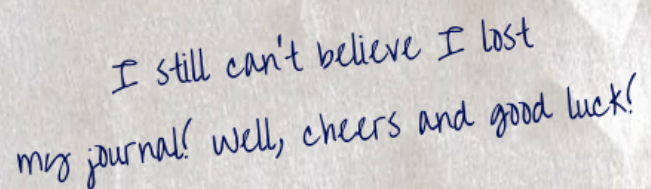 I still can't believe I lost
my journal! Well, cheers and good luck!